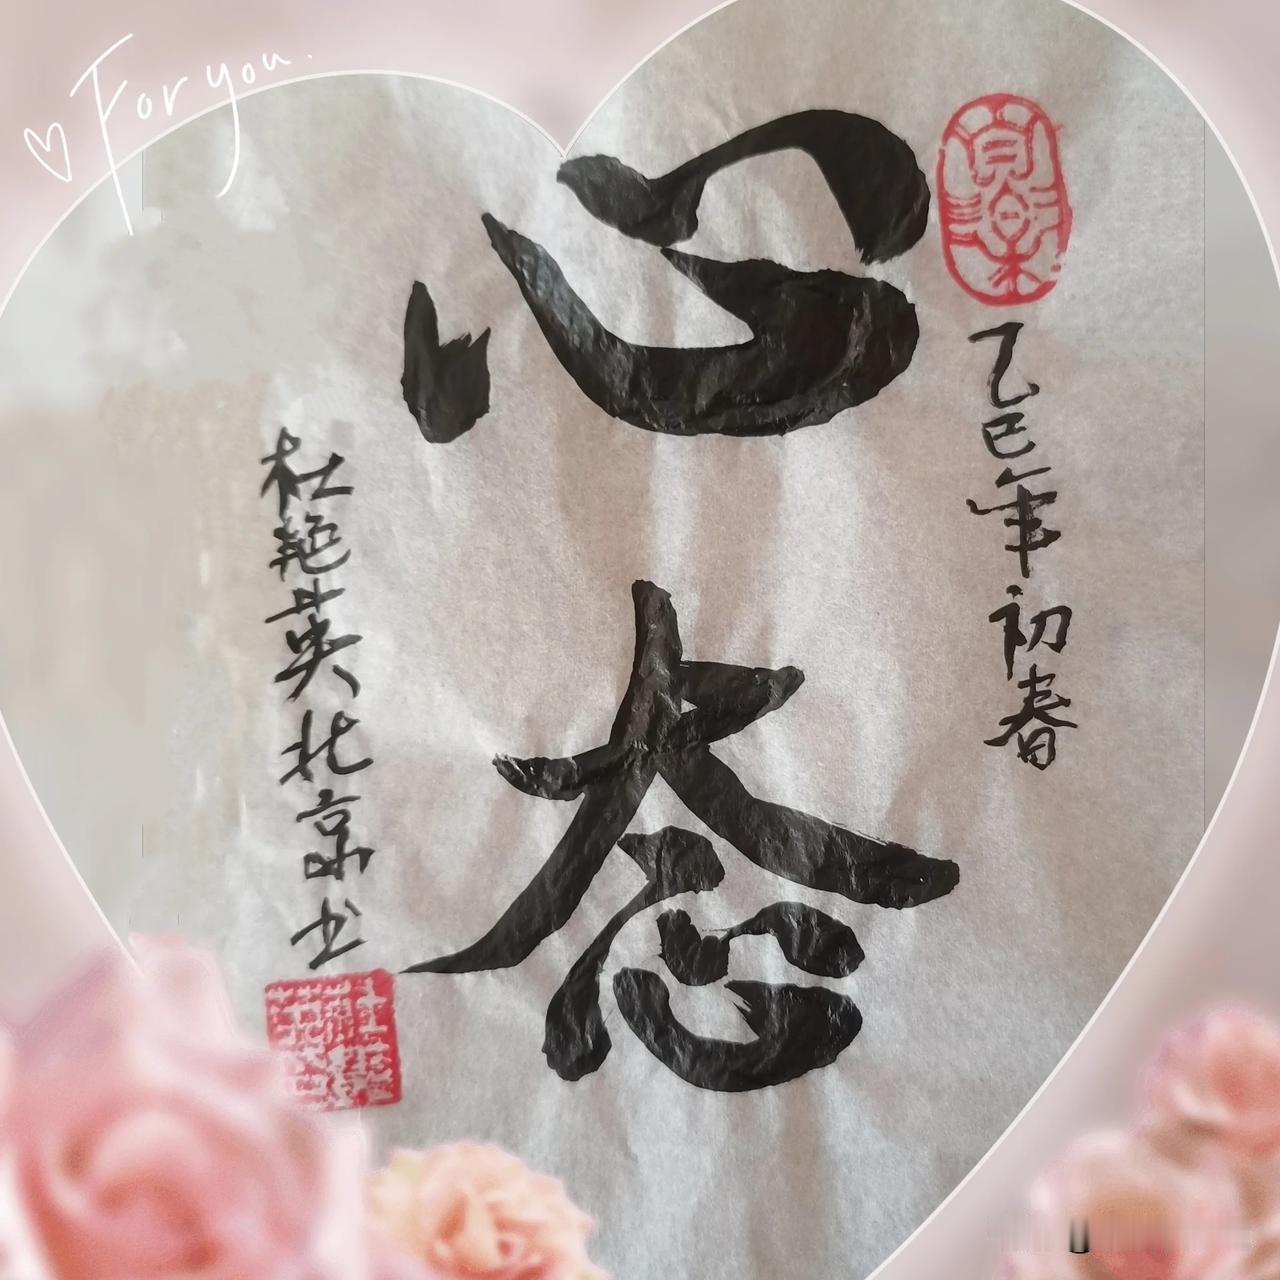 For you.
乙巳年初春
心态
杜艳英北京书